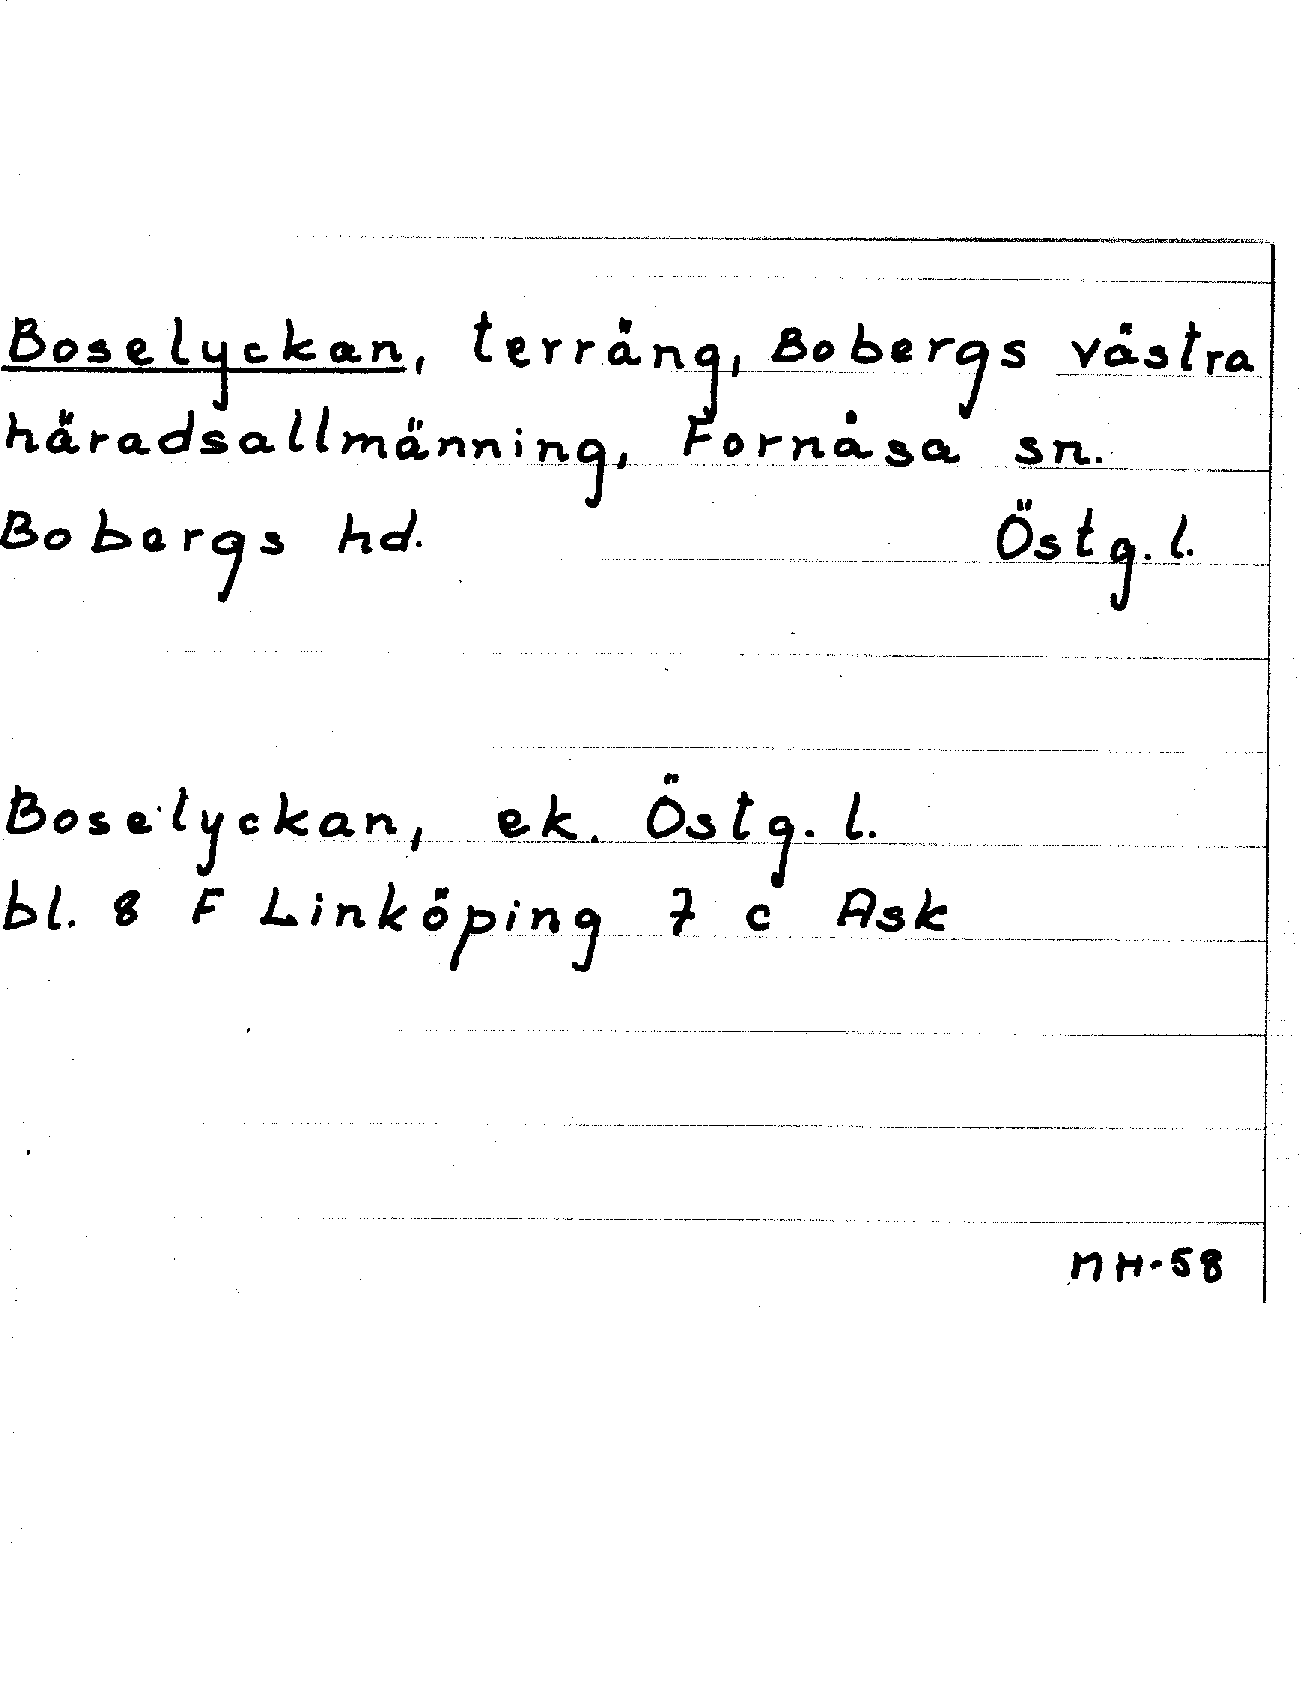 Boselyckan, terräng, Bobergs västra
häradsallmänning, Fornåsa sn.
Bobergs hd. Östg. l.
Boselyckan, ek. Östg. l.
bl. 8 F Linköping 7 c Ask
MH-58